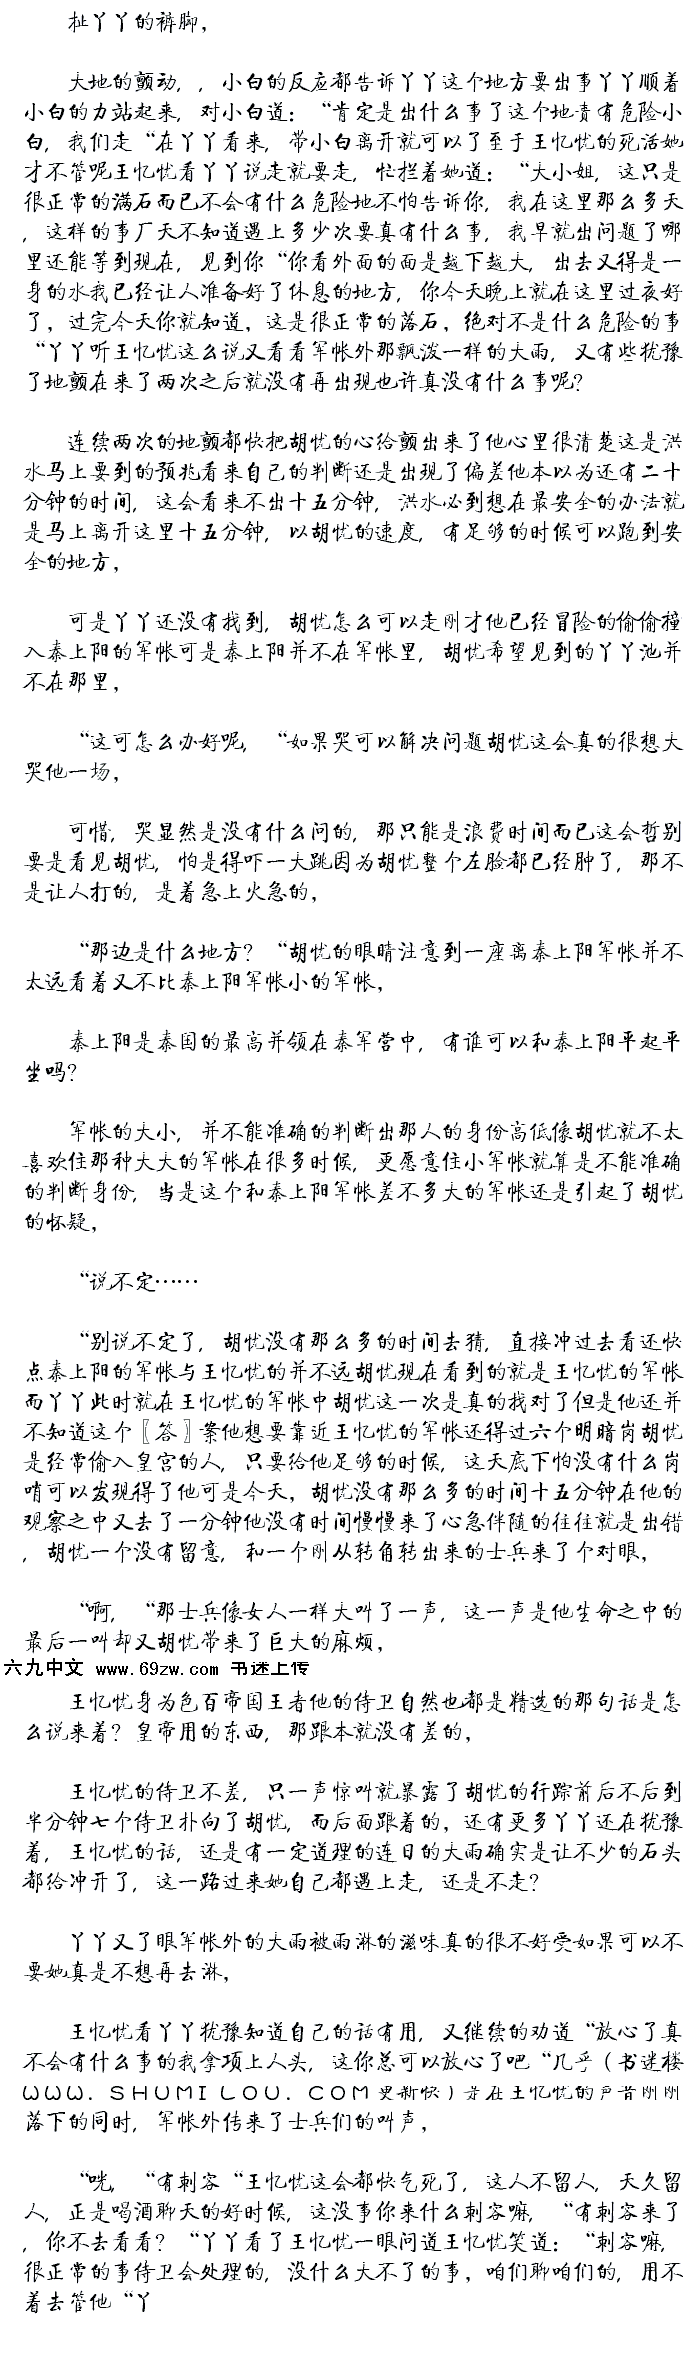 扯丫丫的裤脚，
大地的颤动，，小白的反应都告诉丫丫这个地方要出事丫丫顺着
小白的力站起来，对小白道：“肯定是出什么事了这个地责有危险小
白，我们走“在丫丫看来，带小白离开就可以了至于王忆忧的死活她
才不管呢王忆忧看丫丫说走就要走，忙拦着她道：“大小姐，这只是
很正常的满石而已不会有什么危险地不怕告诉你，我在这里那么多天
，这样的事厂天不知道遇上多少次要真有什么事，我早就出问题了哪
里还能等到现在，见到你“你看外面的面是越下越大，出去又得是一
身的水我已经让人准备好了休息的地方，你今天晚上就在这里过夜好
了，过完今天你就知道，这是很正常的落石，绝对不是什么危险的事
“丫丫听王忆忧这么说又看看军帐外那飘泼一样的大雨，又有些犹豫
了地颤在来了两次之后就没有再出现也许真没有什么事呢？
连续两次的地颤都快把胡忧的心给颤出来了他心里很清楚这是洪
水马上要到的预兆看来自己的判断还是出现了偏差他本以为还有二十
分钟的时间，这会看来不出十五分钟，洪水必到想在最安全的办法就
是马上离开这里十五分钟，以胡忧的速度，有足够的时候可以跑到安
全的地方，
可是丫丫还没有找到，胡忧怎么可以走刚才他已经冒险的偷偷撞
入秦上阳的军帐可是秦上阳并不在军帐里，胡忧希望见到的丫丫池并
不在那里，
“这可怎么办好呢，“如果哭可以解决问题胡忧这会真的很想大
哭他一场，
可惜，哭显然是没有什么问的，那只能是浪费时间而已这会哲别
要是看见胡忧，怕是得吓一大跳因为胡忧整个左脸都已经肿了，那不
是让人打的，是着急上火急的，
“那边是什么地方？“胡忧的眼睛注意到一座离秦上阳军帐并不
太远看着又不比秦上阳军帐小的军帐，
秦上阳是秦国的最高并领在秦军营中，有谁可以和秦上阳平起平
坐吗？
军帐的大小，并不能准确的判断出那人的身份高低像胡忧就不太
喜欢住那种大大的军帐在很多时候，更愿意住小军帐就算是不能准确
的判断身份，当是这个和秦上阳军帐差不多大的军帐还是引起了胡忧
的怀疑，
“说不定……
“别说不定了，胡忧没有那么多的时间去猜，直接冲过去看还快
点秦上阳的军帐与王忆忧的并不远胡忧现在看到的就是王忆忧的军帐
而丫丫此时就在王忆忧的军帐中胡忧这一次是真的找对了但是他还并
不知道这个〖答〗案他想要靠近王忆忧的军帐还得过六个明暗岗胡忧
是经常偷入皇宫的人，只要给他足够的时候，这天底下怕没有什么岗
哨可以发现得了他可是今天，胡忧没有那么多的时间十五分钟在他的
观察之中又去了一分钟他没有时间慢慢来了心急伴随的往往就是出错
，胡忧一个没有留意，和一个刚从转角转出来的士兵来了个对眼，
“啊，“那士兵像女人一样大叫了一声，这一声是他生命之中的
最后一叫却又胡忧带来了巨大的麻烦，
六九中文 www.69zw.com 书迷上传
王忆忧身为色百帝国王者他的侍卫自然也都是精选的那句话是怎
么说来着？皇帝用的东西，那跟本就没有差的，
王忆忧的侍卫不差，只一声惊叫就暴露了胡忧的行踪前后不后到
半分钟七个侍卫扑向了胡忧，而后面跟着的，还有更多丫丫还在犹豫
着，王忆忧的话，还是有一定道理的连日的大雨确实是让不少的石头
都给冲开了，这一路过来她自己都遇上走，还是不走？
丫丫又了眼军帐外的大雨被雨淋的滋味真的很不好受如果可以不
要她真是不想再去淋，
王忆忧看丫丫犹豫知道自己的话有用，又继续的劝道“放心了真
不会有什么事的我拿项上人头，这你总可以放心了吧“几乎（书迷楼
WWW．ＳＨＵＭＩＬＯＵ．ＣＯＭ更新快）是在王忆忧的声音刚刚
落下的同时，军帐外传来了士兵们的叫声，
“咣，“有刺客“王忆忧这会都快气死了，这人不留人，天久留
人，正是喝酒聊天的好时候，这没事你来什么刺客嘛，“有刺客来了
，你不去看看？“丫丫看了王忆忧一眼问道王忆忧笑道：“刺客嘛，
很正常的事侍卫会处理的，没什么大不了的事、咱们聊咱们的，用不
着去管他“丫